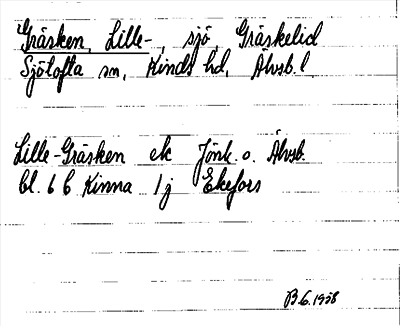 Gräsken, Lille-, sjö, Gräskelid
Sjötofta sn, Kinds hd, Älvsb. l.
Lille-Gräsken ek Jönk. o. Älvsb.
bl. 6 C Kinna 1j Ekefors
B.6.1958